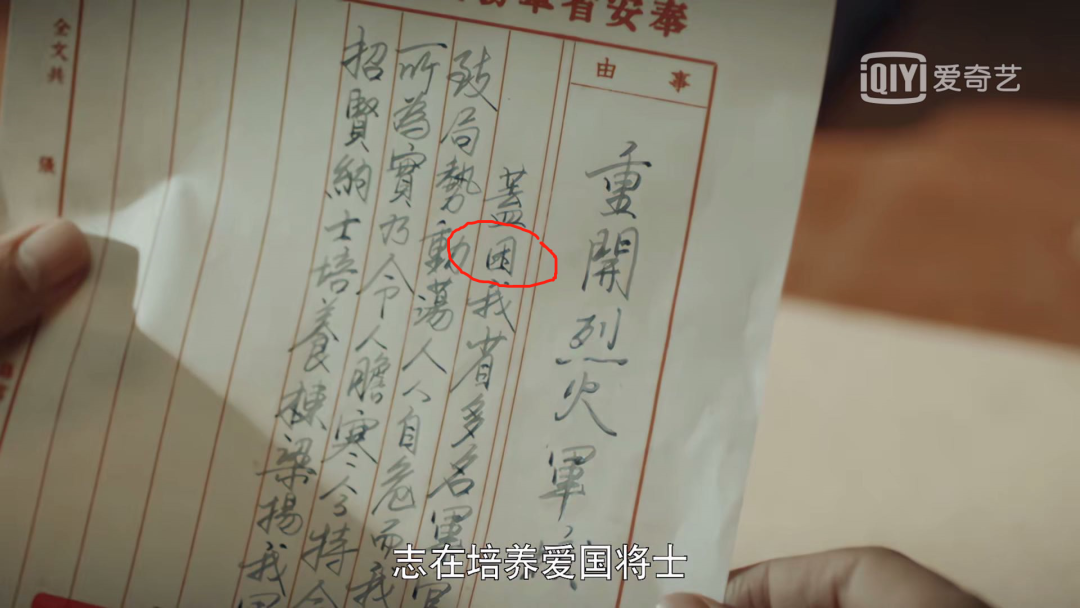 奉安省軍
事由
重開烈火軍
蓋困我省多名軍官
致局勢動蕩人人自危而我
所為實乃令人膽寒今特令
招賢納士培養棟梁揚我
全文共 張
iQIYI 爱奇艺
志在培养爱国将士